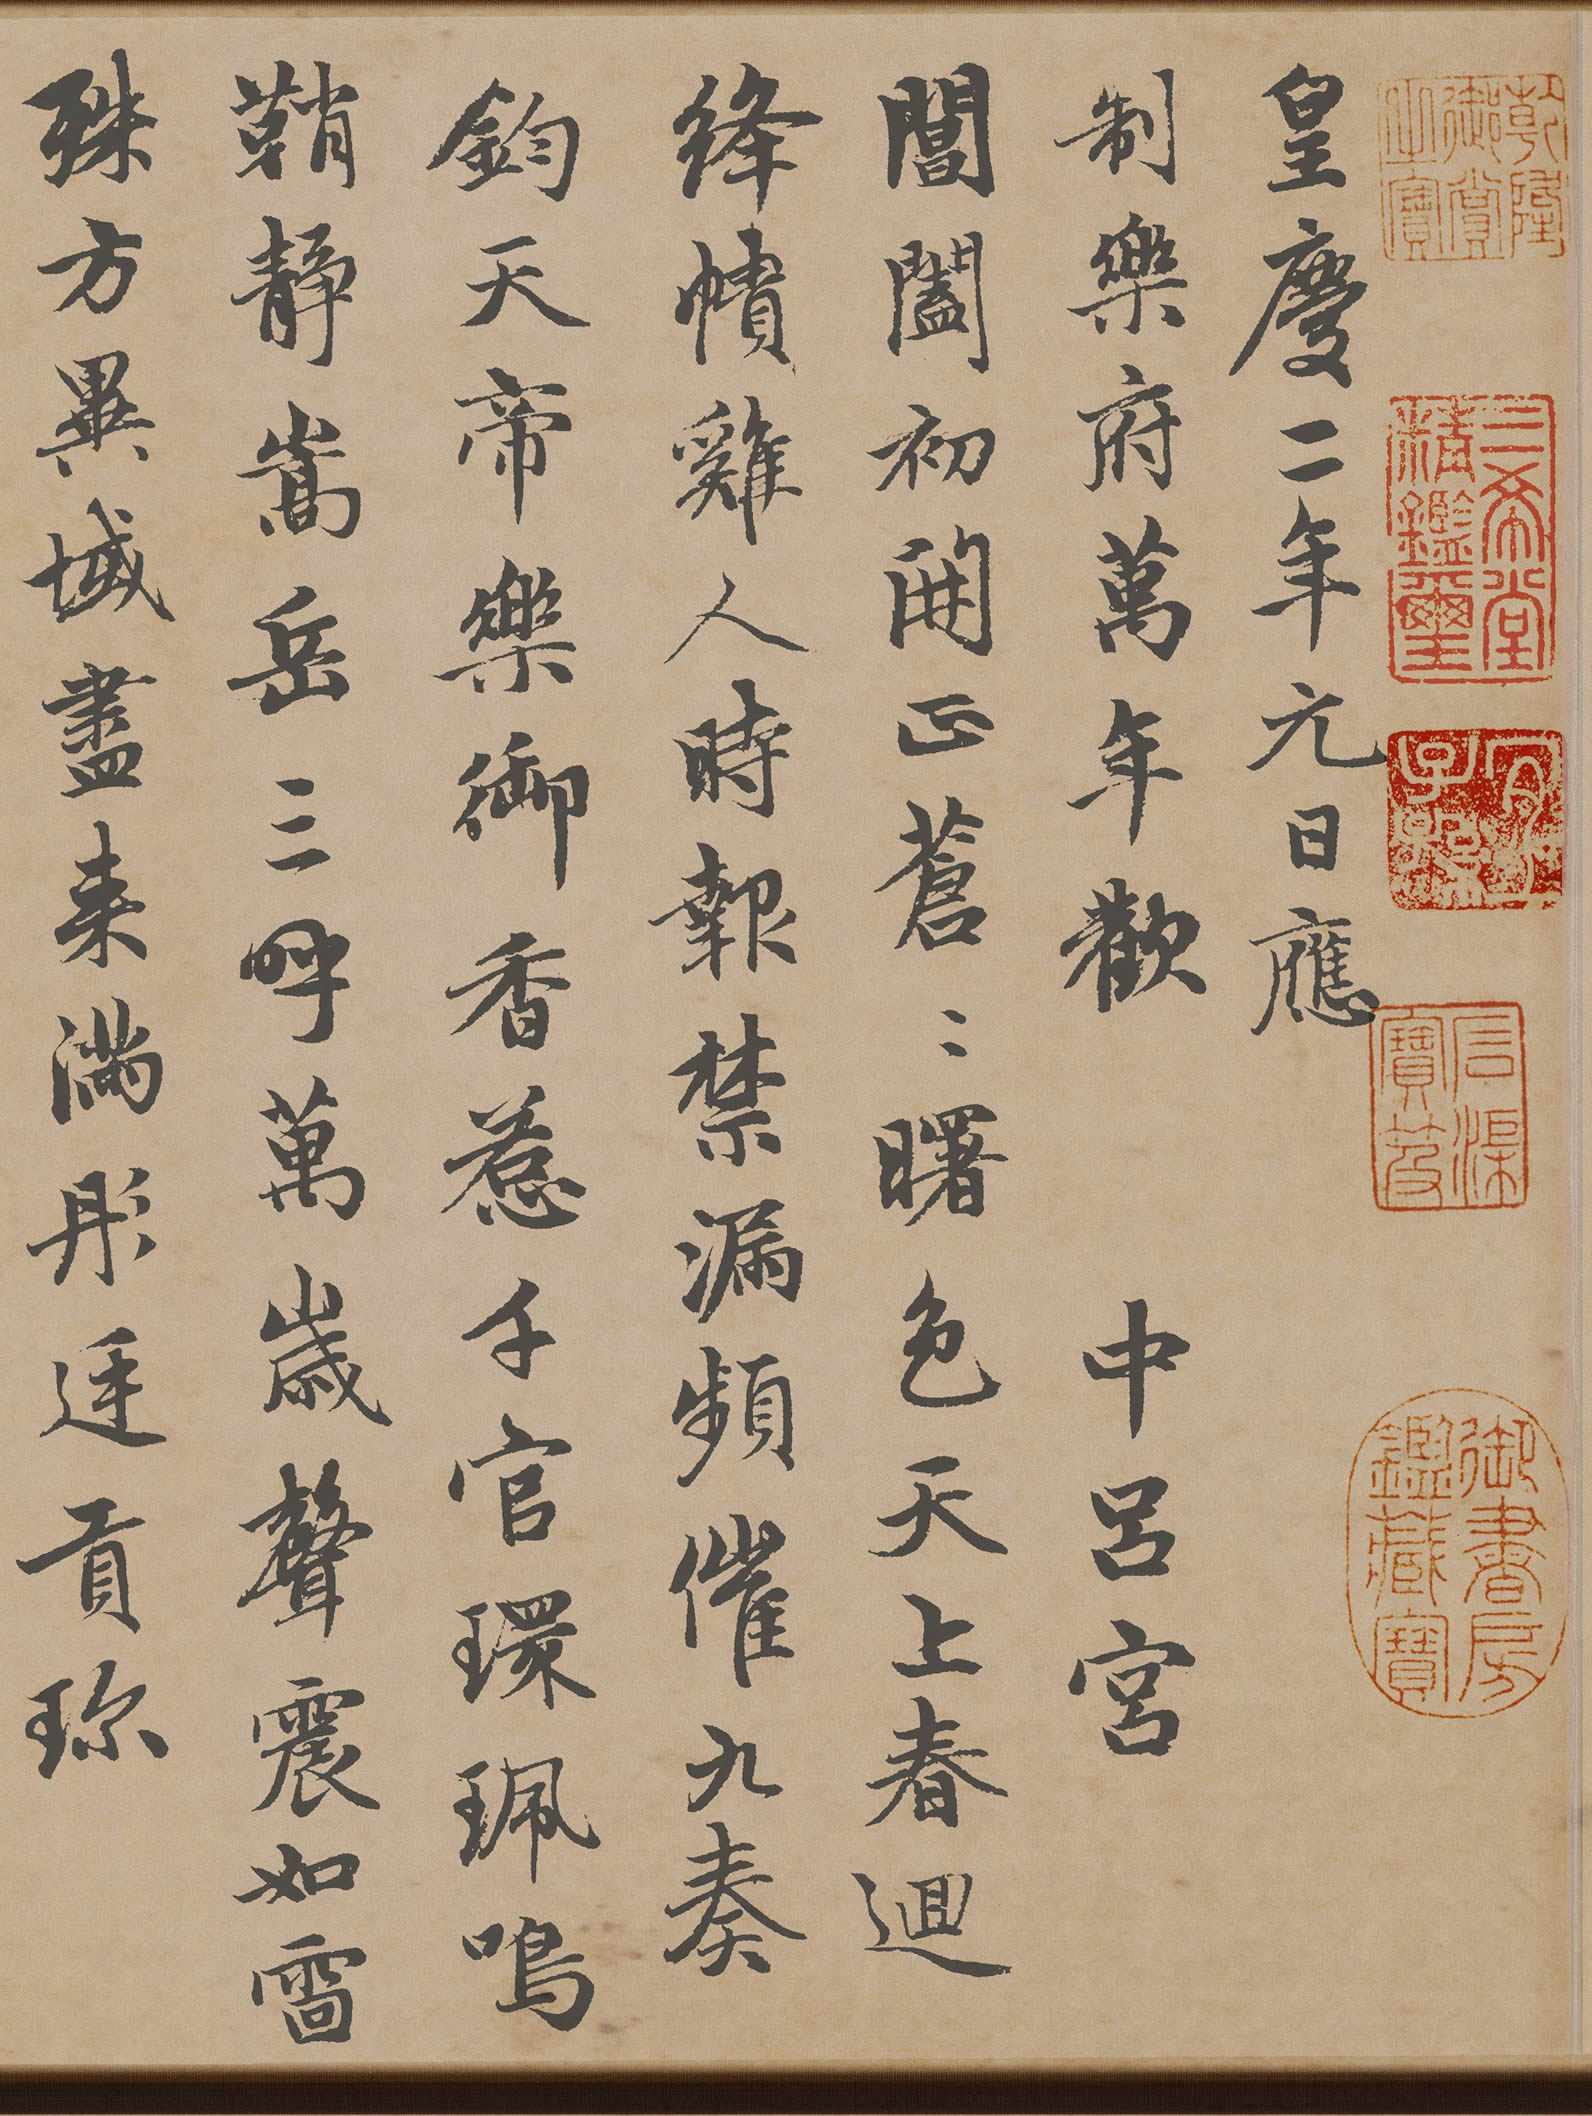 皇慶二年元日應
制樂府萬年歡　中呂宮
閶闔初開正蒼〻曙色天上春迴
絳幘雞人時報禁漏頻催九奏
鈞天帝樂御香惹千官環珮鳴
鞘靜嵩岳三呼萬歲聲震如雷
殊方異域盡来滿彤廷貢珎
乾隆御賞之寶
三希堂精鑑璽
宜子孫
石渠寶笈
御書房鑑藏寶